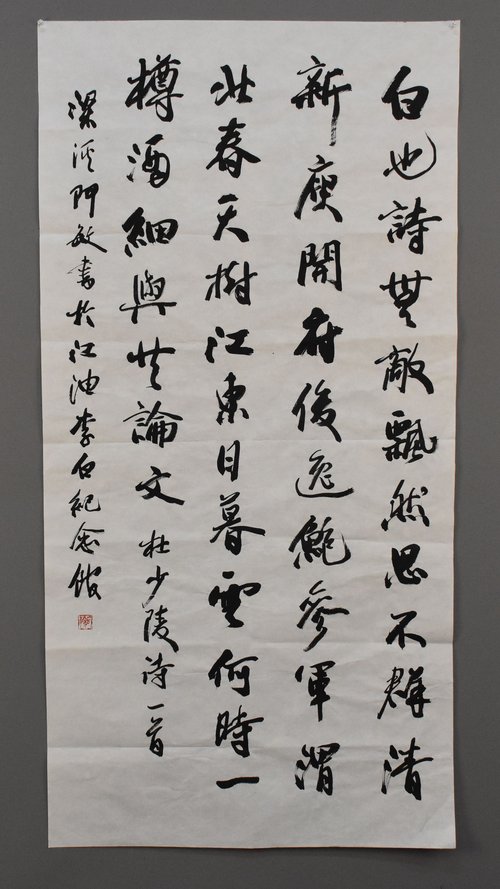 白也詩無敵飄然思不群清
新庾開府俊逸鮑參軍渭
北春天樹江東日暮雲何時一
樽酒細與共論文 杜少陵诗一首
梁溪阿敏書於江油李白紀念館